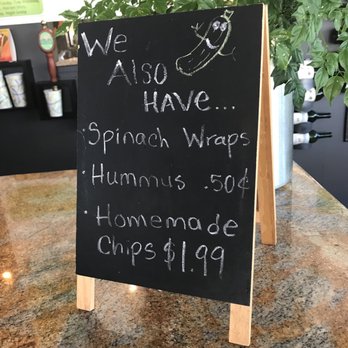 We
Also
HAVE...
· Spinach Wraps
· Hummus .50¢
· Homemade
Chips $1.99